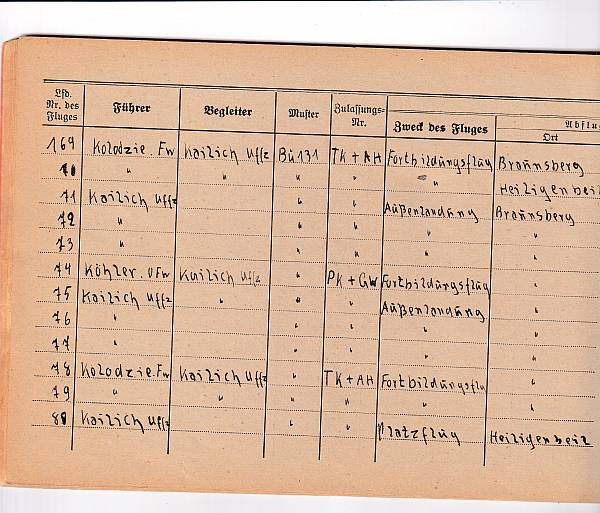 Lfd. Nr. des Fluges Führer Begleiter Muster Zulassungs-Nr. Zweck des Fluges Abflu
Ort
169 Kolodzie. Fw Kailich Uffz Bü 131 TK + AH Fortbildungsflug Braunsberg
70 " " " " " Heiligenbeil
71 Kailich Uffz " " Außenlandung Braunsberg
72 " " " " "
73 " " " " "
74 Köhler. OFw Kailich Uffz " PK + GW Fortbildungsflug "
75 Kailich Uffz " " " Außenlandung "
76 " " " " "
77 " " " " "
78 Kolodzie. Fw Kailich Uffz " TK + AH Fortbildungsflu "
79 " " " " " "
80 Kailich Uffz " " Platzflug Heiligenbeil